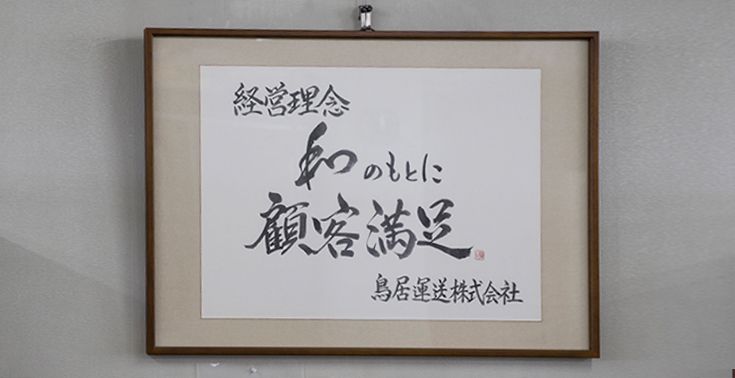 経営理念
和のもとに
顧客満足
鳥居運送株式会社